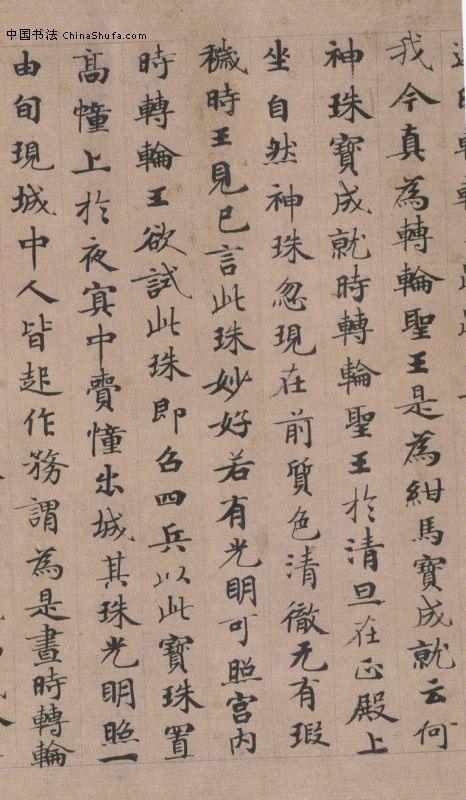 中国书法 ChinaShufa.com
我今真為轉輪聖王是為紺馬寶成就云何
神珠寶成就時轉輪聖王於清旦在正殿上
坐自然神珠忽現在前質色清徹无有瑕
穢時王見已言此珠妙好若有光明可照宮内
時轉輪王欲試此珠即召四兵以此寶珠置
髙幢上於夜冥中賷幢出城其珠光明照一
由旬現城中人皆起作務謂為是晝時轉輪